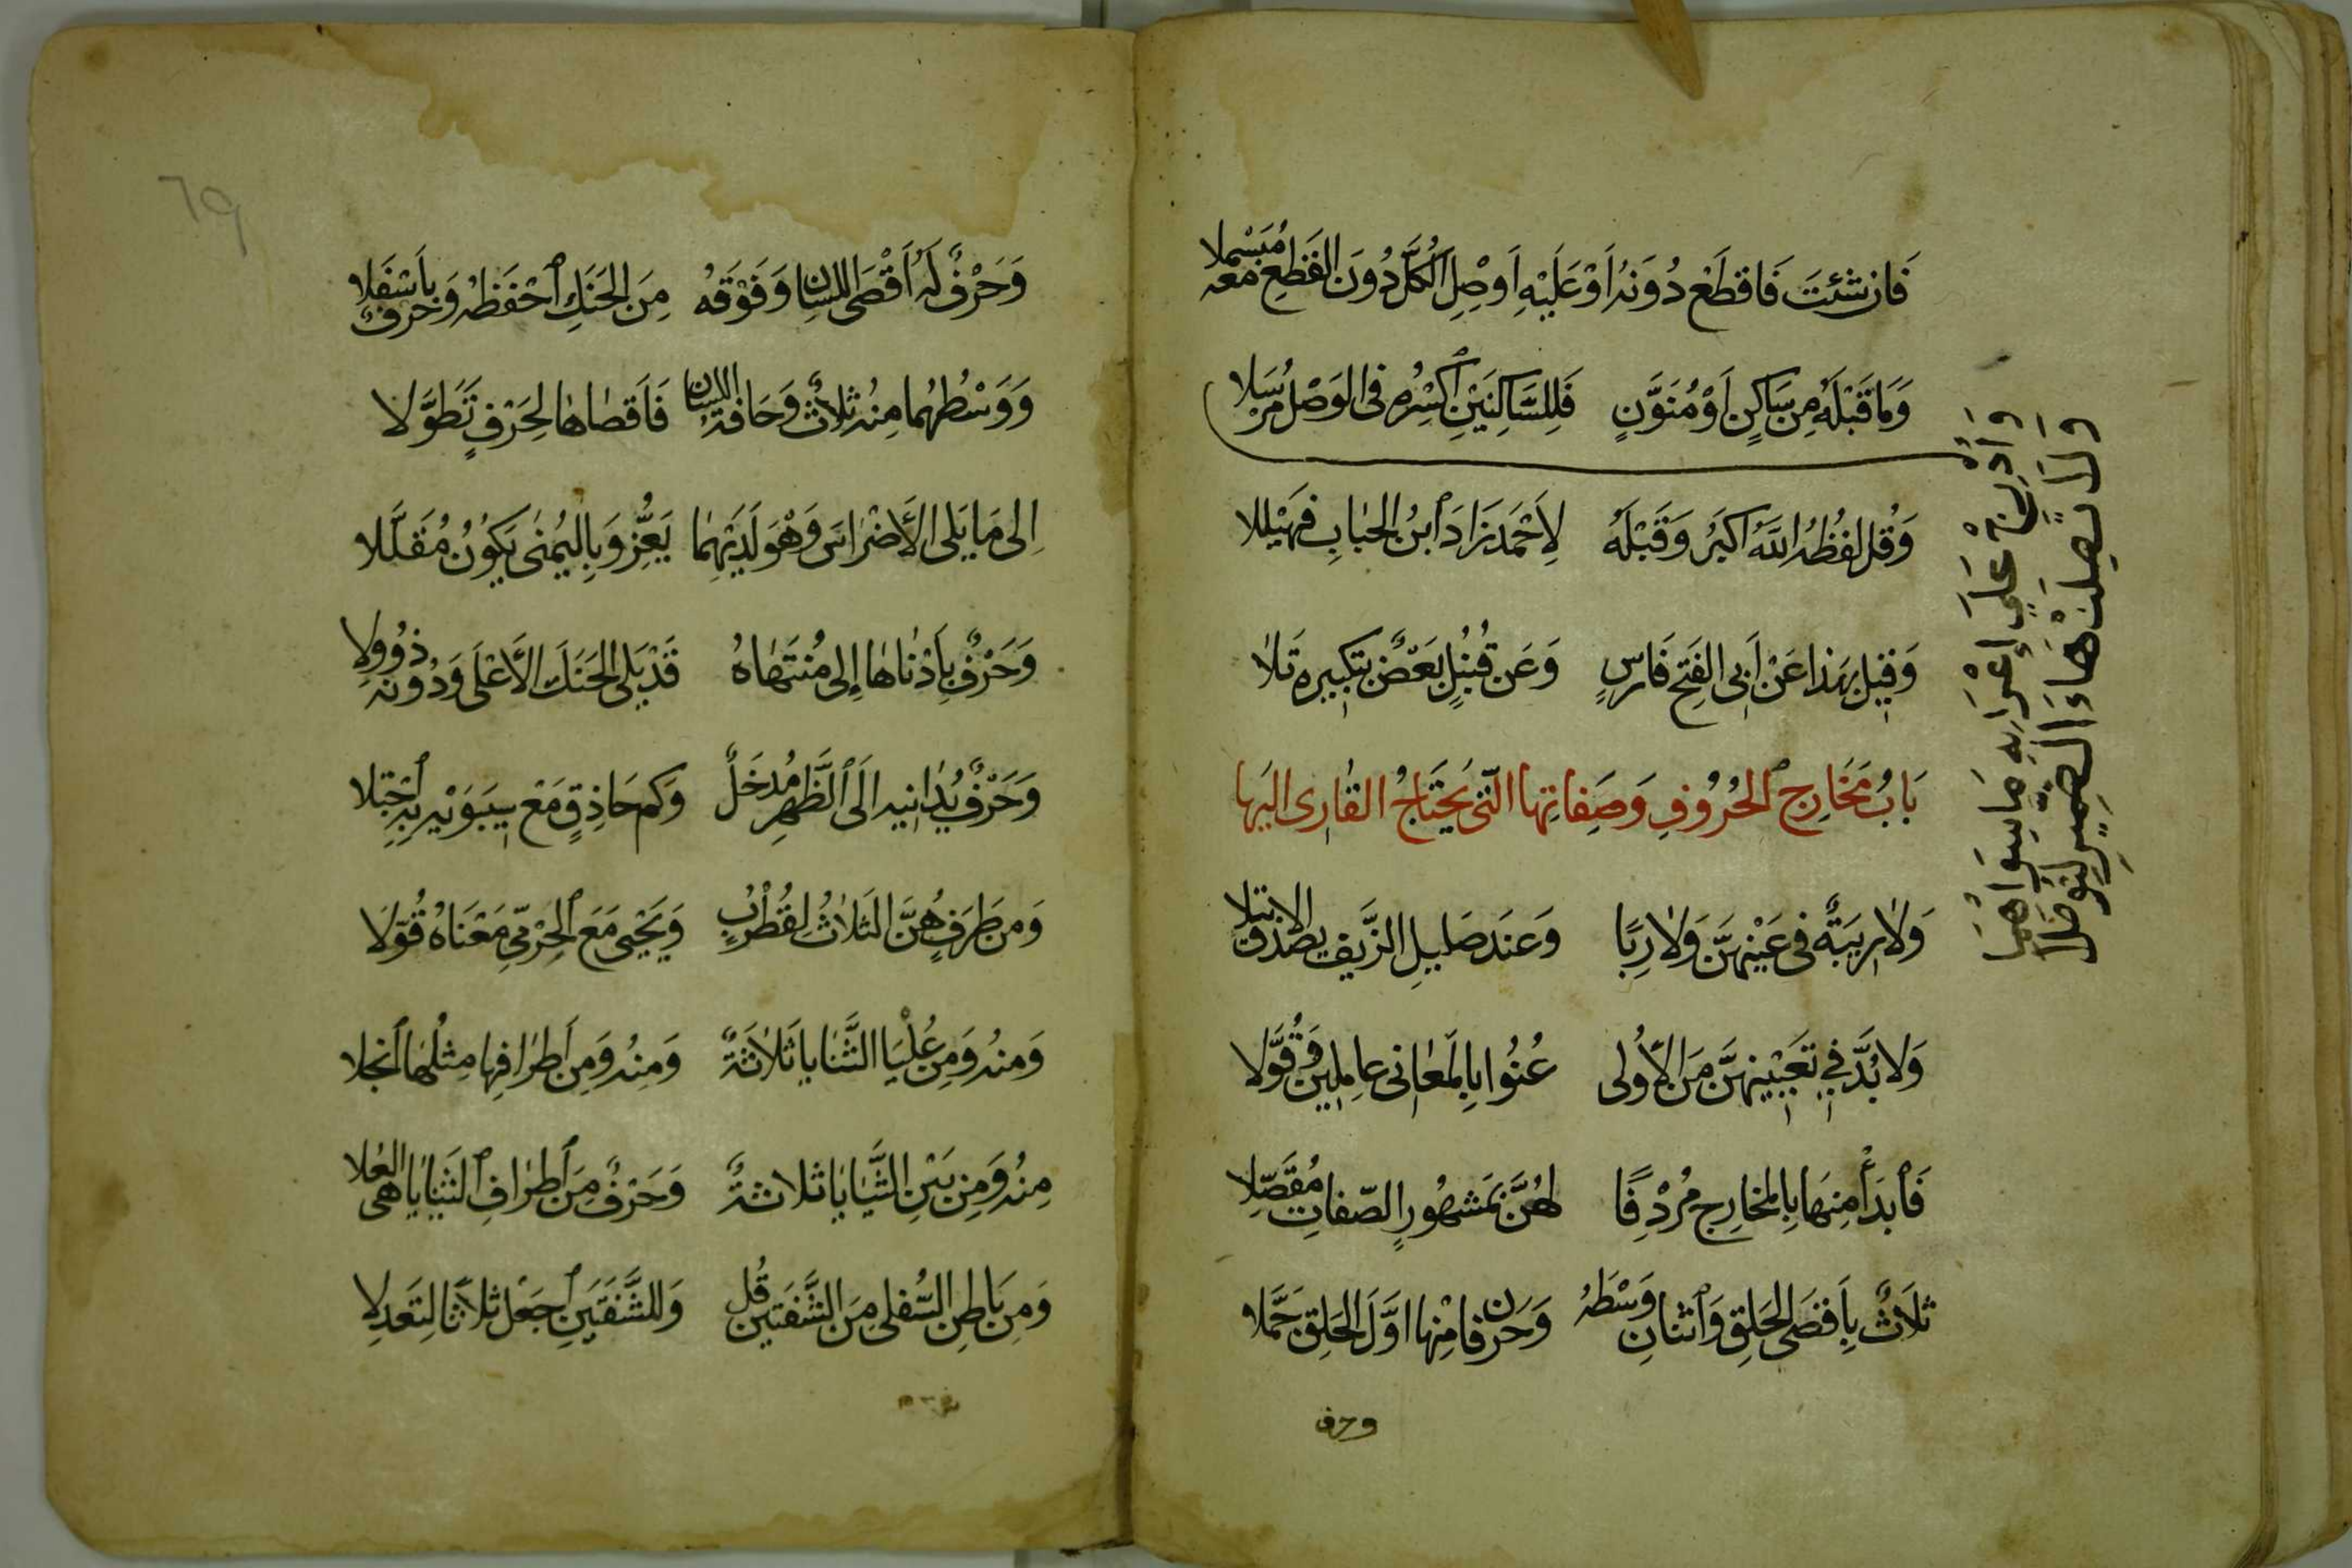 فَإِن شِئتَ فَاقطَعْ دُونَهُ أَوْ عَلَيْهِ أَوْ صِلِ الكُلَّ دُونَ القَطعِ مَعْهُ مُبَسْمِلا
وَمَا قَبْلَهُ مِن سَاكِنٍ أَوْ مُنَوَّنٍ فَلِلسَّاكِنَيْنِ ٱكْسِرْهُ فِى الوَصْلِ مُرْسَلا
وَأَدْرِجْ عَلَى إِعْرَابِهِ مَا سِوَاهُمَا
وَلَا تَصِلَنْ هَاءَ الضَّمِيرِ لِتُوصَلا
وَقُل لفظُهُ اللّهُ أَكبَرُ وَقَبْلَهُ لِأَحْمَدَ زَادَ ٱبنُ الحُبَابِ فَهَيْلَلا
وَقِيلَ بِهَذا عَنْ أَبِى الفَتحِ فَارِسٍ وَعَن قُنبُلٍ بَعْضٌ بِتَكبِيرِهِ تَلا
بَابُ مَخَارِجِ ٱلحُرُوفِ وَصِفَاتِهَا الَّتِى يَحْتَاجُ القَارِى إِلَيهَا
وَلا رِيبَةٌ فِى عَيْنِهِنَّ وَلا رِبًا وَعِندَ صَلِيلِ الزَّيفِ يَصْدُقُ الاِبتِلا
وَلا بُدَّ فِى تَعْيِينِهِنَّ مِنَ الأُولَى عُنُوا بِالمَعَانِى عَامِلِينَ وَقُوَّلا
فَٱبدَأْ مِنهَا بِالمَخَارِجِ مُرْدِفًا لَهُنَّ بِمَشهُورِ الصِّفَاتِ مُفَصِّلا
ثَلاثٌ بِأَقصَى الحَلقِ وَٱثنَانِ وَسْطَهُ وَحَرفَانِ مِنهَا أَوَّلَ الحَلقِ جُمِّلا
وحرف
٦٩
وَحَرْفٌ لَهُ أَقْصَى اللِّسَانِ وَفَوْقَهُ مِنَ الحَنَكِ ٱحْفَظْهُ وَحَرفٌ بِأَسْفَلا
وَوَسْطُهُمَا مِنهُ ثَلاثٌ وَحَافَةُ اللِّسَانِ فَأَقصَاهَا لِحَرْفٍ تَطَوَّلا
إِلَى مَا يَلِى الأَضْرَاسَ وَهْوَ لَدَيْهِمَا يَعِزُّ وَبِاليُمْنَى يَكُونُ مُقَلَّلا
وَحَرْفٌ بِأَدْنَاهَا إِلَى مُنتَهَاهُ قَدْ يَلِى الحَنَكَ الأَعْلَى وَدُونَهُ ذُو وِلا
وَحَرْفٌ يُدَانِيهِ إِلَى ٱلظَّهرِ مَدْخَلٌ وَكَم حَاذِقٍ مَعْ سِيبَوَيْهِ بِهِ ٱجْتَلا
وَمِن طَرَفٍ هُنَّ الثَّلاثُ لِقُطْرُبٍ وَيَحْيَى مَعَ ٱلجَرْمِىِّ مَعْنَاهُ قُوِّلا
وَمِنهُ وَمِن عُلْيَا الثَّنَايَا ثَلاثَةٌ وَمِنهُ وَمِن أَطرَافِهَا مِثلُهَا ٱنجَلا
مِنهُ وَمِن بَيْنِ الثَّنَايَا ثَلاثَةٌ وَحَرْفٌ مِنَ ٱطرَافِ ٱلثَّنَايَا هِىَ العُلا
وَمِن بَاطِنِ السُّفلَى مِنَ الشَّفَتَيْنِ قُل وَلِلشَّفَتَينِ ٱجعَل ثَلاثًا لِتَعدِلا